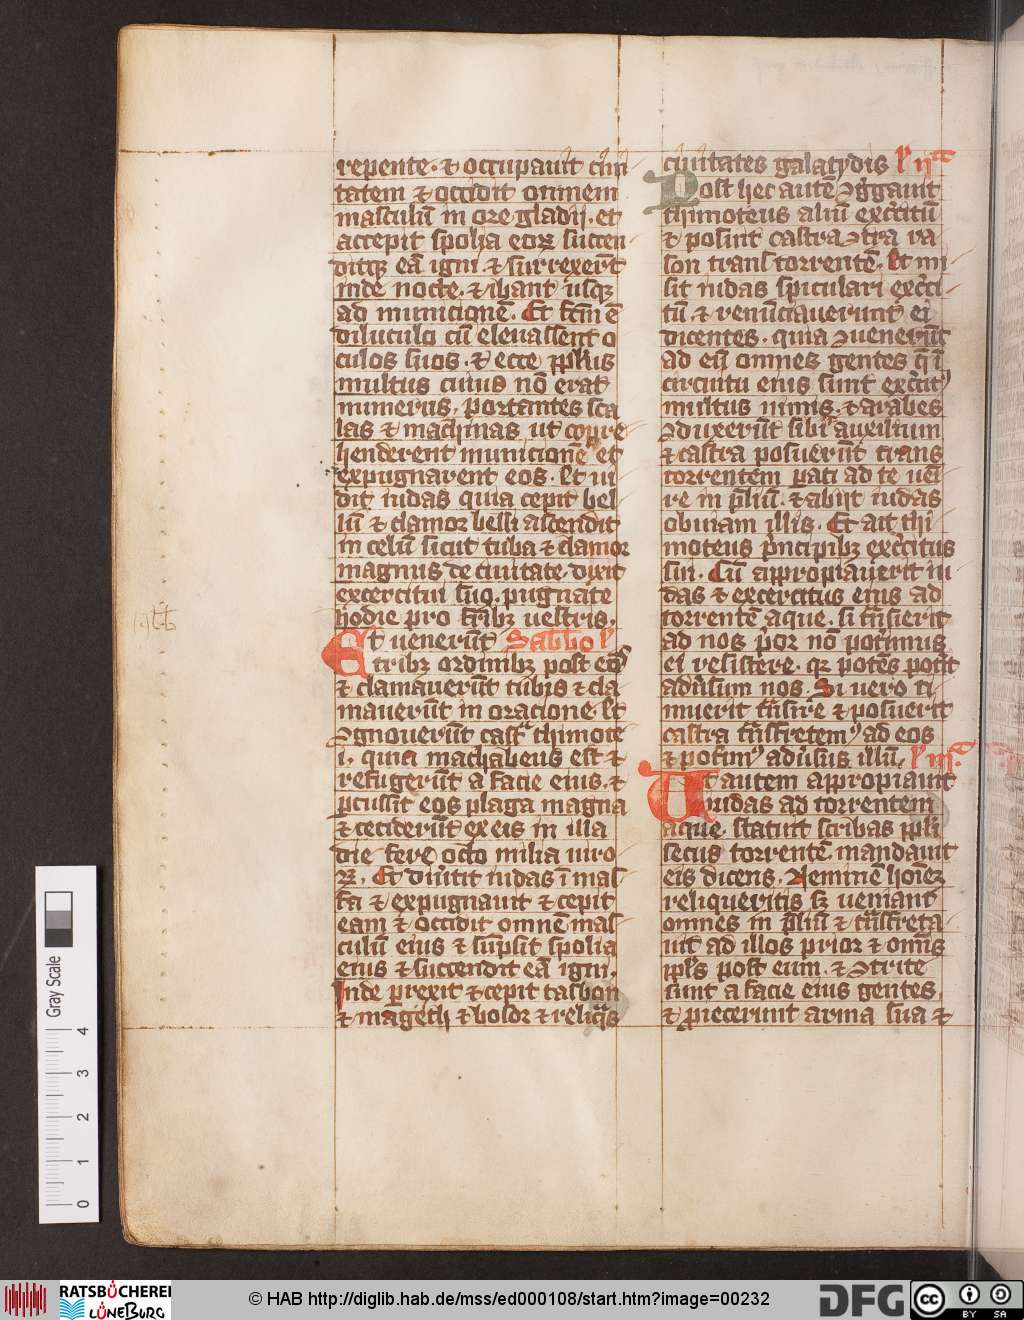 repente · ⁊ occupauit ciui
tatem ⁊ occidit omnem
masculū in ore gladij · et
accepit spolia eoꝝ succen
ditqꝫ eā igni · ⁊ surrexerūt
inde nocte · ⁊ ibant usqꝫ
ad municionē · Et fcm̄ ē
diluculo cū eleuassent o
culos suos · ⁊ ecce ppl̄us
multus cuius nō erat
numerus · portantes sca
las ⁊ machinas ut conpre
henderent municionē et
expugnarent eos · Et ui
dit iudas quia cepit bel
lū ⁊ clamor belli ascendit
in celū sicut tuba ⁊ clamor
magnus de ciuitate · dixit
excercitui suo · pugnate
hodie pro fr̄ibꝫ uestris ·
Et uenerūt Sabbo l̕
tribꝫ ordinibꝫ post eos
⁊ clamauerūt tubis ⁊ cla
mauerūt in oracione · Et
ꝯgnouerūt castᵃ thimote
i · quia machabeus est ⁊
refugerūt a facie eius · ⁊
ꝑcussit eos plaga magna
⁊ ceciderūt ex eis in illa
die fere octo milia uiro
ꝝ · Et diuītit iudas ī mas
fa ⁊ expugnauit ⁊ cepit
eam ⁊ occidit omnē mas
culū eius ⁊ sūpsit spolia
eius ⁊ succendit eā igni ·
Inde ꝑrexit ⁊ cepit tasbon
⁊ mageth ⁊ bosor ⁊ reliqᵃs
ciuitates galatydis l̕ ijᵃ
Post hec autē ꝯg̕gauit
thimoteus aliū exc̕citū
⁊ posuit castra ꝯtra ra
fon trans torrentē · Et mi
sit iudas speculari exc̕ci
tū · ⁊ renūciauerunt ei
dicentes · quia ꝯuenerūt
ad eū omnes gentes q̄ ī
circuitu eius sunt exc̕citꝰ
multus nimis · ⁊ arabes
ꝯduxerūt sibi auxilium
⁊ castra posuerūt trans
torrentem ꝑati ad te ueni
re in p̄liū · ⁊ abijt iudas
obuiam illis · Et ait thi
moteus pⁱncipibꝫ exc̕citus
sui · Cū appropiauerit iu
das ⁊ excercitus eius ad
torrentē aque · si trāsierit
ad nos pⁱor nō poterimus
ei resistere · qꝛ potēs potit
aduʼsum nos · Si uero ti
muerit trāsire ⁊ posuerit
castra · trāsfretemꝰ ad eos
⁊ poterimꝰ aduʼsus illū · l̕ iijᵃ
Ut autem appropiauit
iudas ad torrentem
aque · statuit scribas ppl̄i
secus torrentē mandauit
eis dicens · Neminē hoīem
reliqueritis sꝫ ueniant
omnes in p̄liū ⁊ trāsfreta
uit ad illos prior ⁊ omīs
ppl̄s post eum · ⁊ ꝯtrite
sunt a facie eius gentes
⁊ ꝓiecerunt arma sua ⁊
Gray Scale
4
3
2
1
0
RATSBÜCHEREI
LÜNEBURG
© HAB http://diglib.hab.de/mss/ed000108/start.htm?image=00232
DFG
cc BY SA